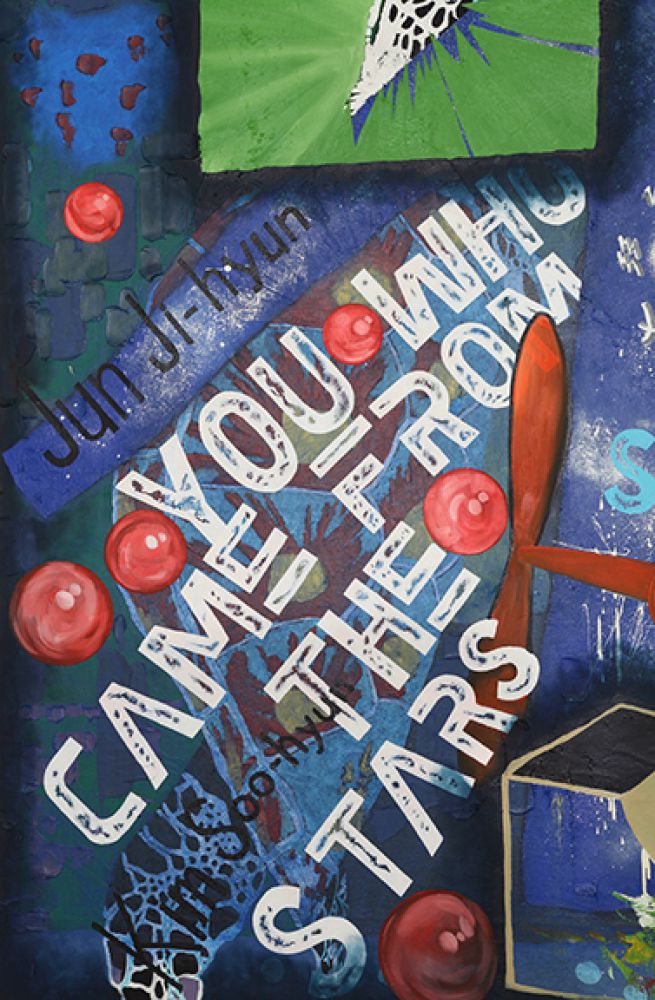 Jun Ji-hyun
YOU WHO
CAME FROM
THE
STARS
Kim Soo-hyun
S